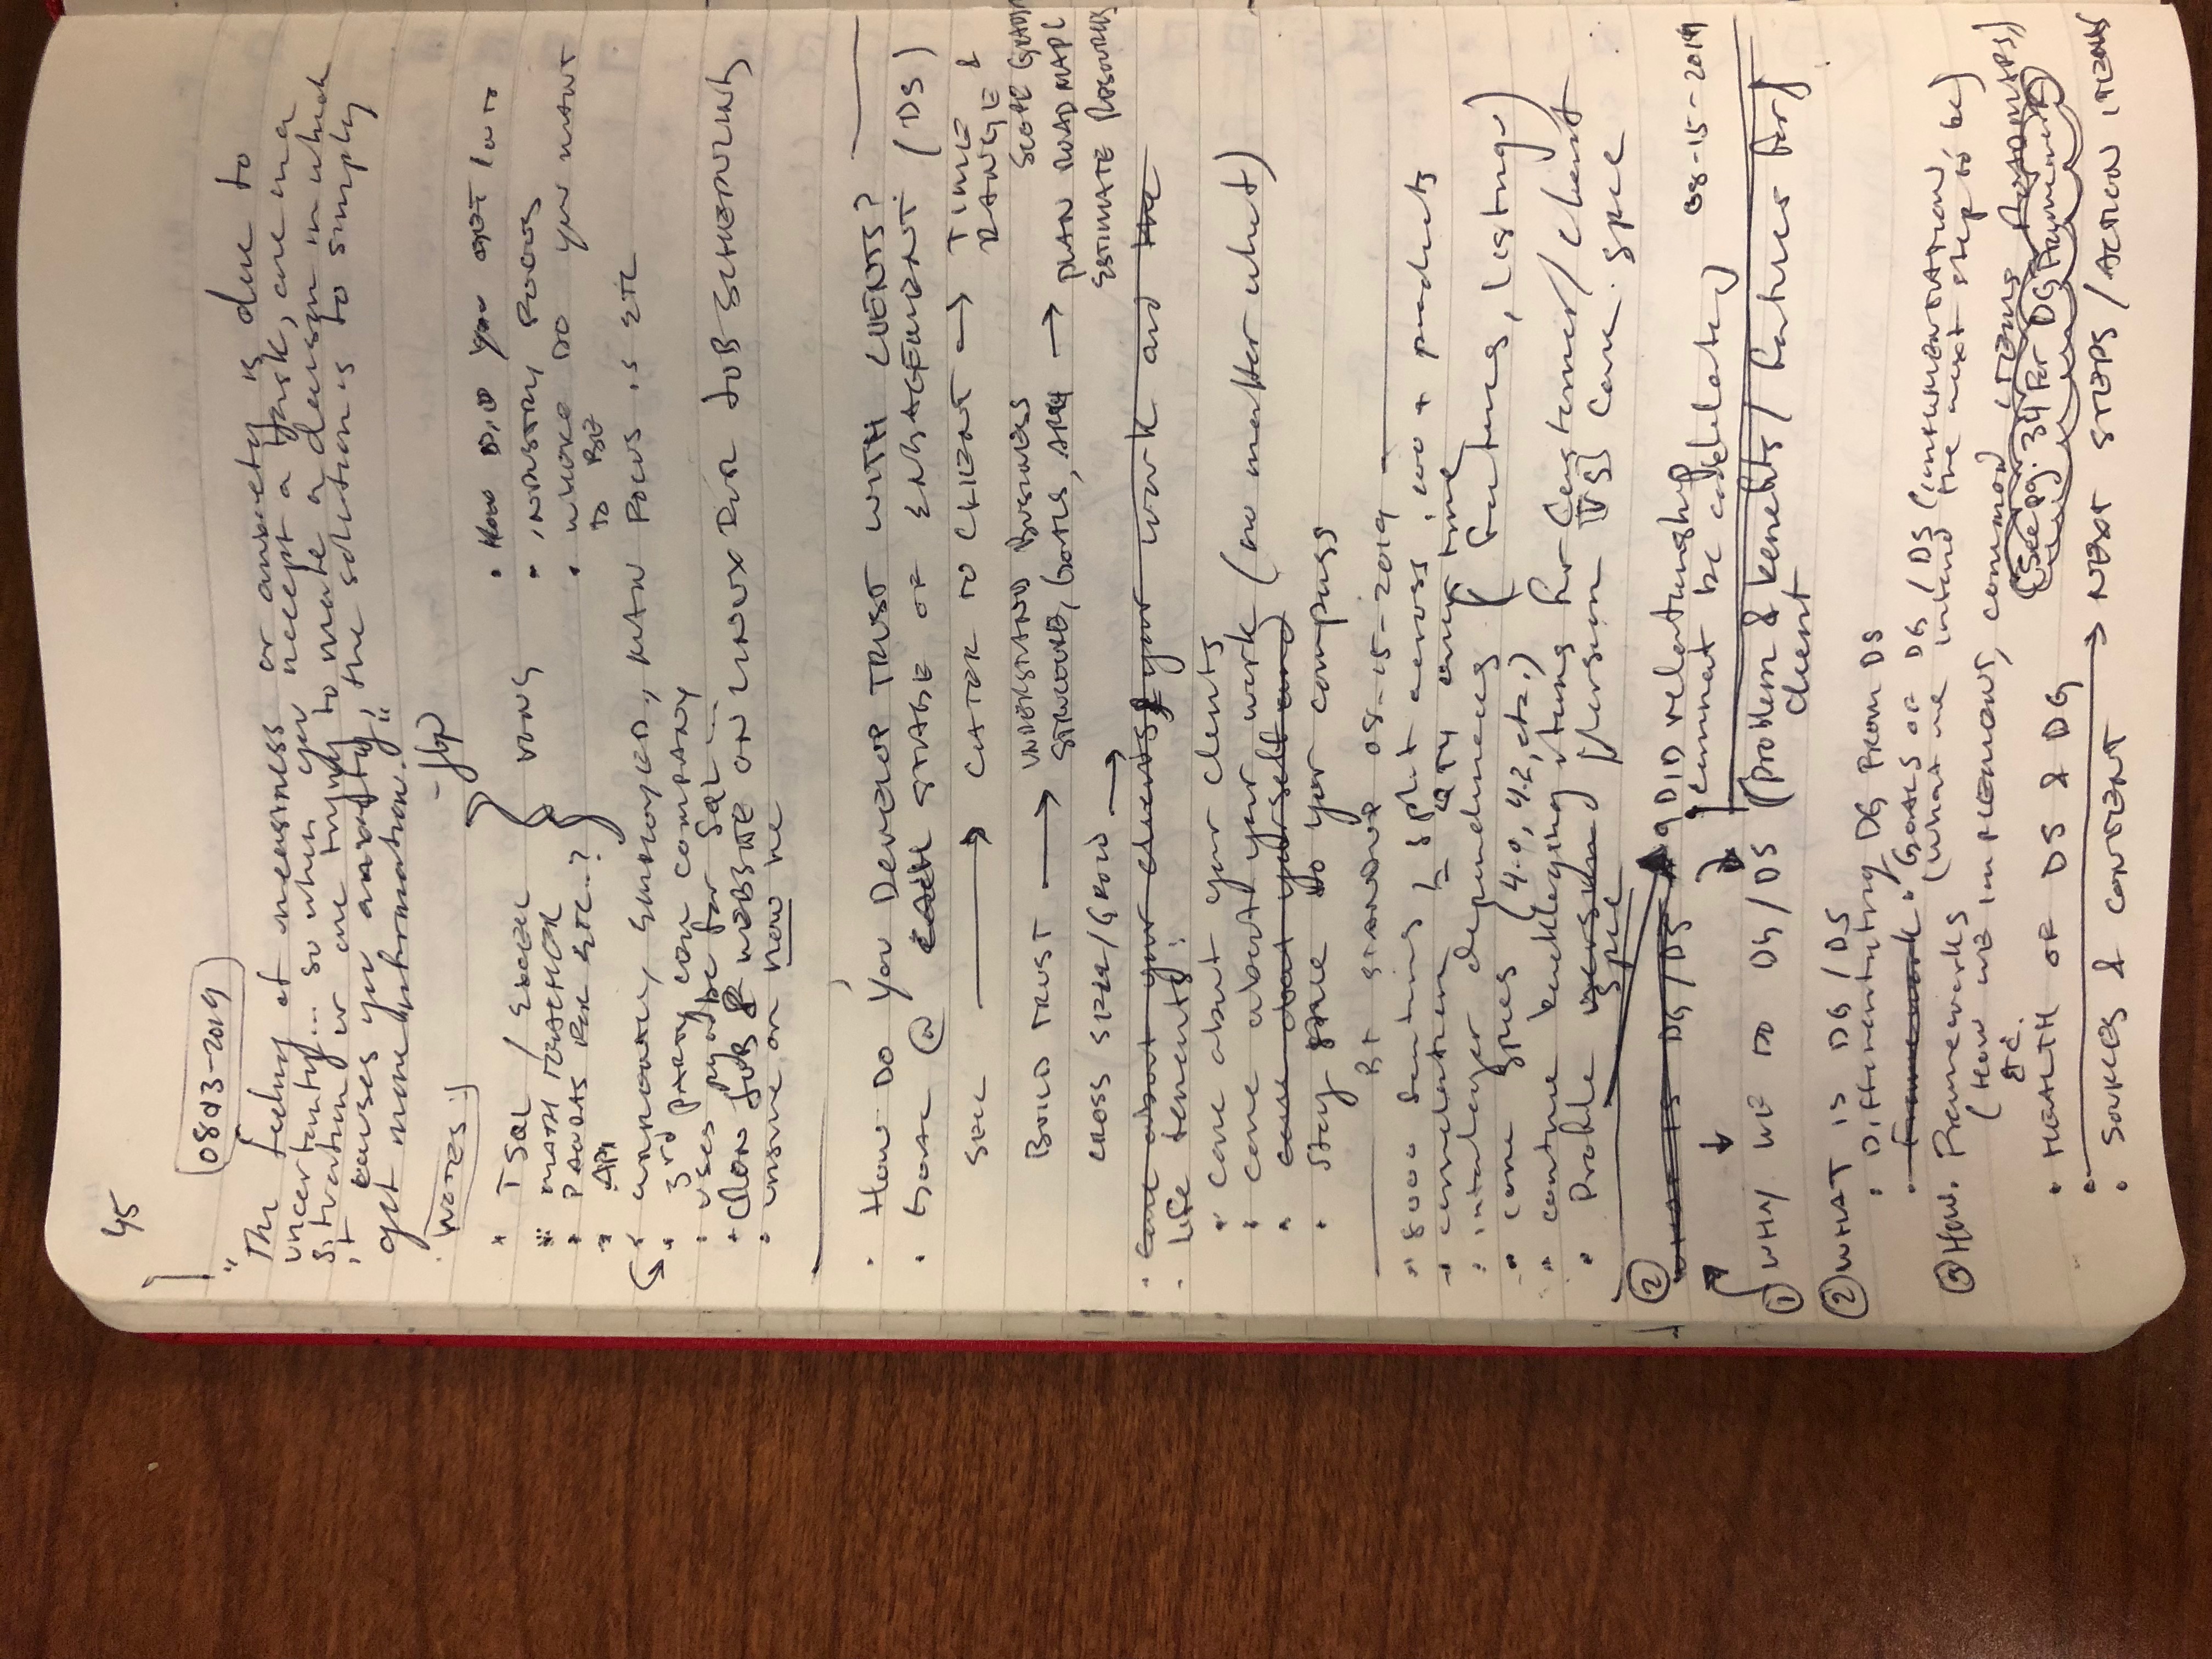 45
08-13-2019
"The feeling of uneasiness or anxiety is due to
uncertainty... so when you accept a task, are in a
situation or are trying to make a decision in which
it causes you anxiety, the solution is to simply
get more information."
NOTES:
• TSQL / EXCEL
• MATH TEACHER
• PANDAS FOR ETL..?
• API
• HOW DID YOU GET INTO
• INDUSTRY FOCUS
• WHERE DO YOU WANT
TO BE
• CURRENTLY EMPLOYED, MAIN FOCUS IS ETL
• 3rd PARTY COMPANY
• uses pyodbc for SQL ...
• CRON JOB & WEBSITE ON LINUX FOR JOB SCHEDULING
• on how he
• HOW DO YOU DEVELOP TRUST WITH CLIENTS?
• GOAL @ EACH STAGE OF ENGAGEMENT (DS)
SELL → CATER TO CLIENT → TIME &
RANGE
SCOPE
BUILD TRUST → UNDERSTAND BUSINESS
STRUCTURE, GOALS, ARCH → PLAN ROADMAP &
ESTIMATE RESOURCES
CROSS SELL/GROW →
• care about your clients & your work and the
• Life tenents:
• care about your clients
• care about your work (no matter what)
• care about yourself and
• Stay true to your compass
BT STANDUP 08-15-2019
• 8000 features, split across 100+ products
• correlation = QTY over time
• interlayer dependencies (features, listings)
• core specs (4.0, 4.2, etc.)
• continue backlogging items for Customer/client
• Profile version / Version [VS] Core spec
Spec
② WHAT IS DG/DS
QDID relationship
cannot be
08-15-2019
① WHY WE DO DG/DS (problem & benefits / features for
client
② WHAT IS DG/DS
• Differentiating DG FROM DS
• Framework • GOALS OF DG/DS (IMPLEMENTATION,
(what we intend the next step to be)
③ HOW. Frameworks
(HOW WE IMPLEMENT, COMMON ITEMS, ROADMAPS)
ETC.
(See pg. 34 for DG Framework)
• HEALTH OF DS & DG
• → NEXT STEPS / ACTION ITEMS
• SOURCES & CONTENT